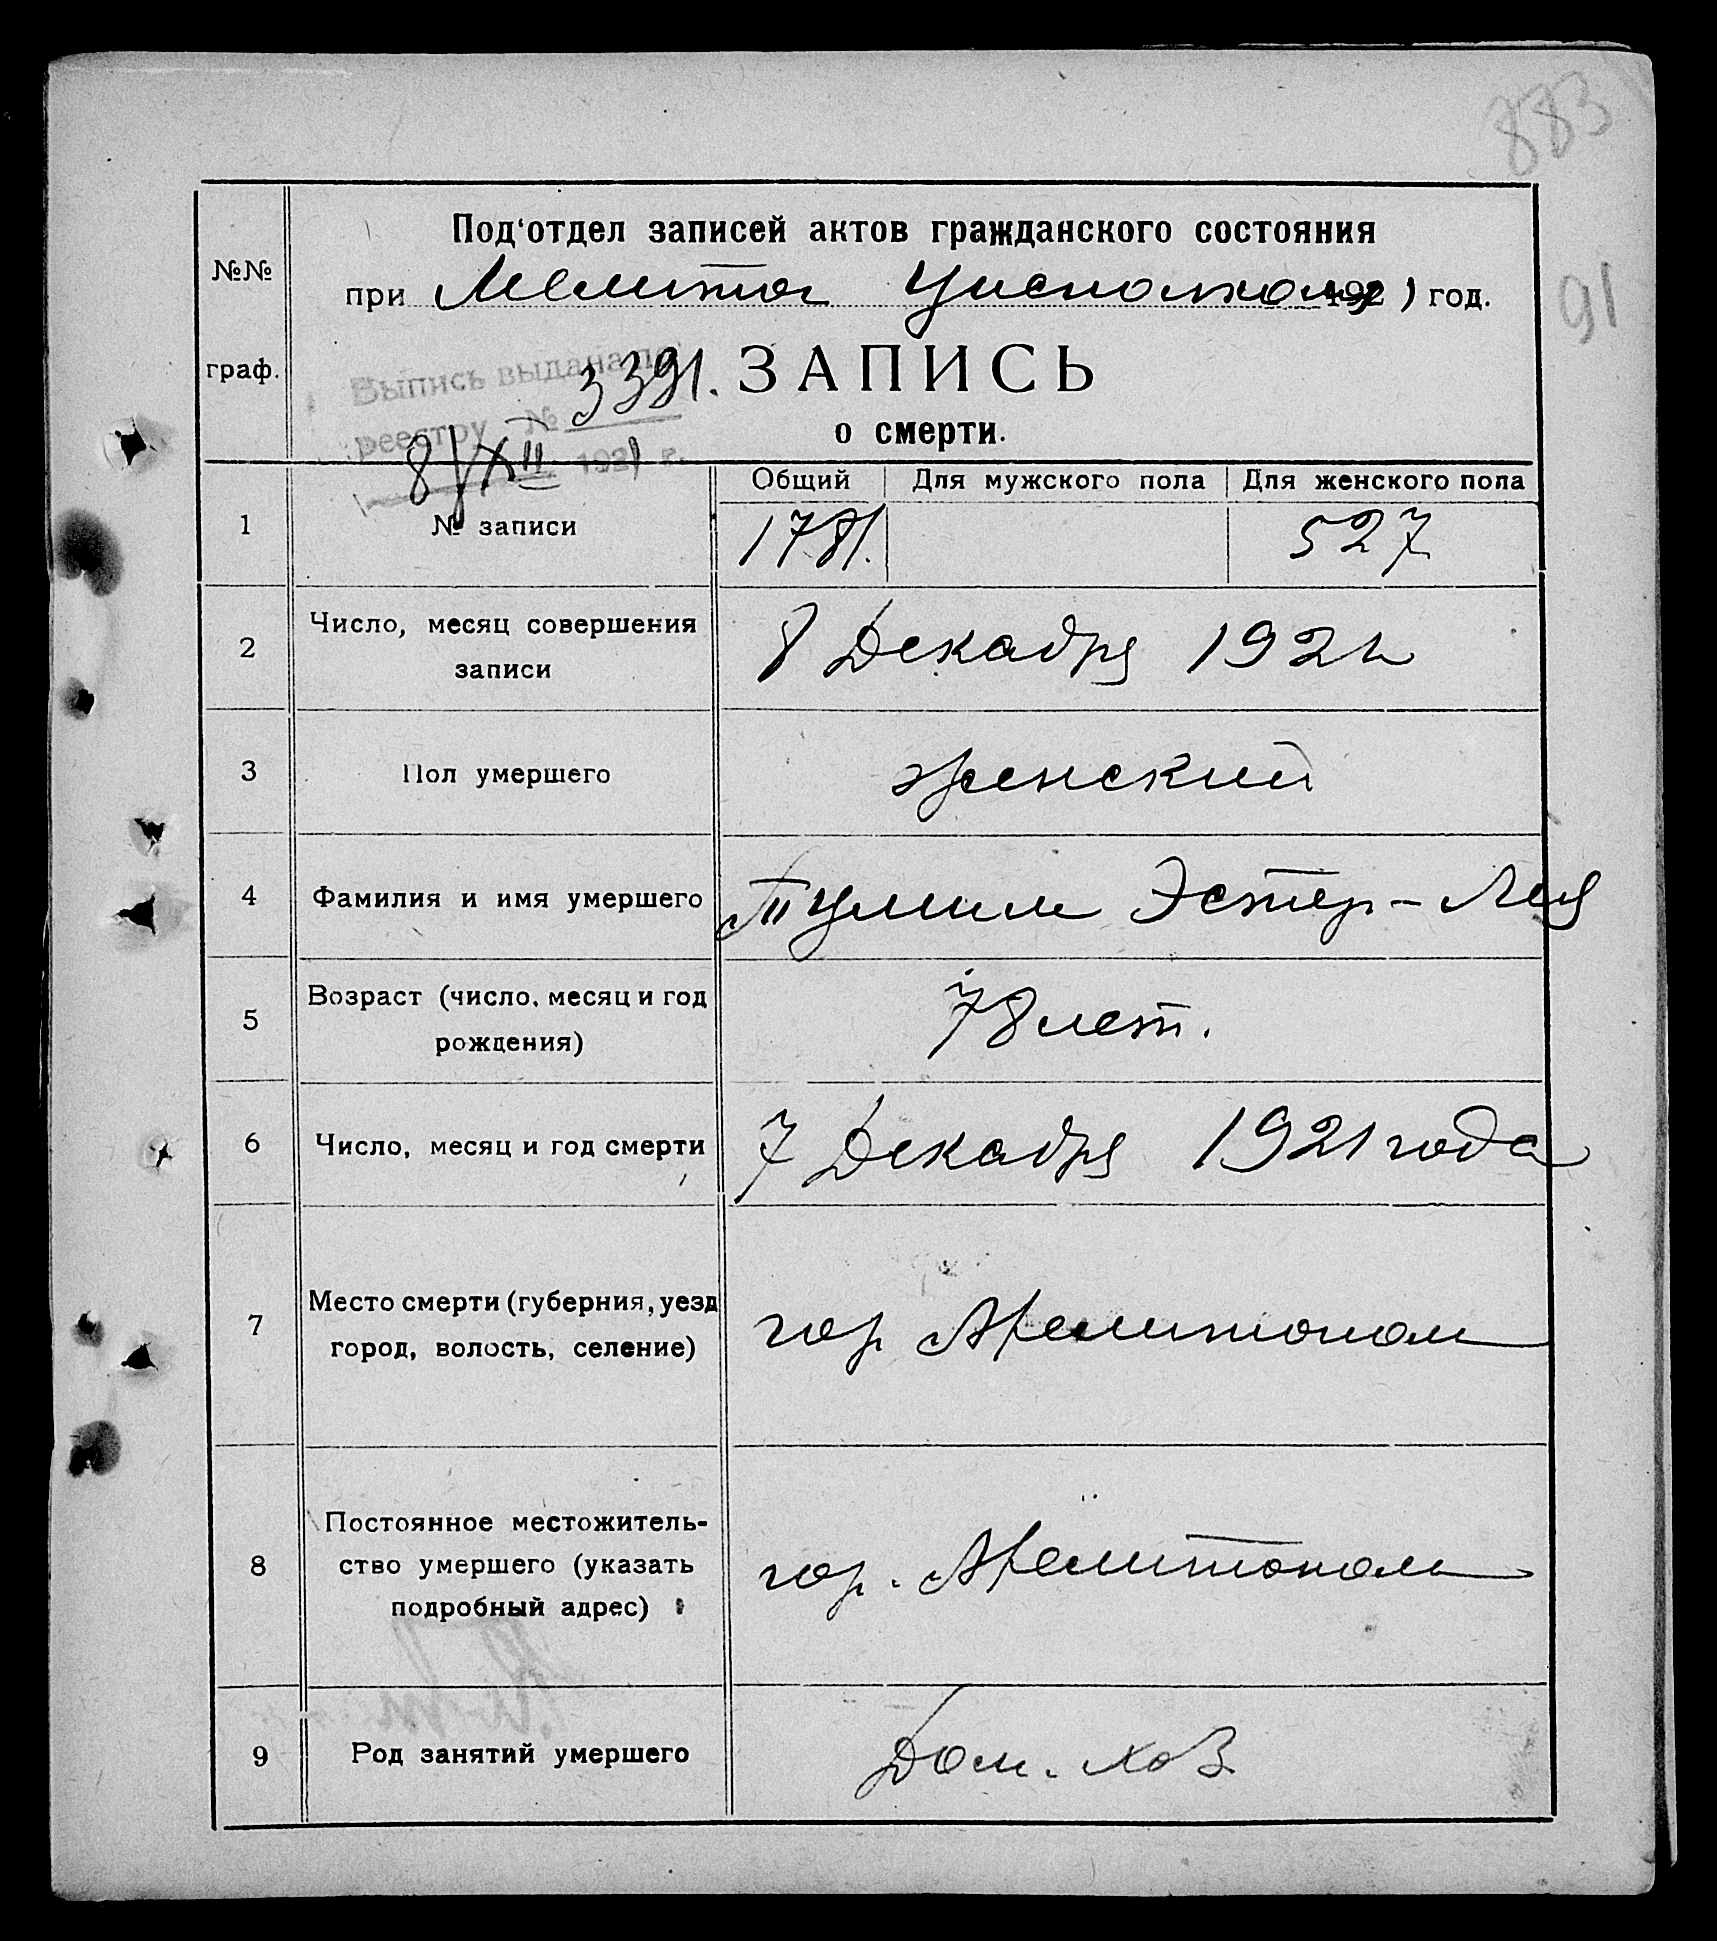 883
91
№№
граф.
Под'отдел записей актов гражданского состояния
при Мелитоп Уисполкому 1921 год.
Выпись выдана по
реестру № 3391.
8/XII 1921 г.
ЗАПИСЬ
о смерти.
Общий Для мужского пола Для женского пола
1 № записи 1781. 527
2 Число, месяц совершения
записи
8 Декабря 1921
3 Пол умершего женский
4 Фамилия и имя умершего Тулмил Эстер-Лея
5 Возраст (число, месяц и год
рождения)
78 лет.
6 Число, месяц и год смерти 7 Декабря 1921 года
7 Место смерти (губерния, уезд
город, волость, селение)
гор Мелитополь
8 Постоянное местожитель-
ство умершего (указать
подробный адрес)
гор. Мелитополь
9 Род занятий умершего Дом. хоз